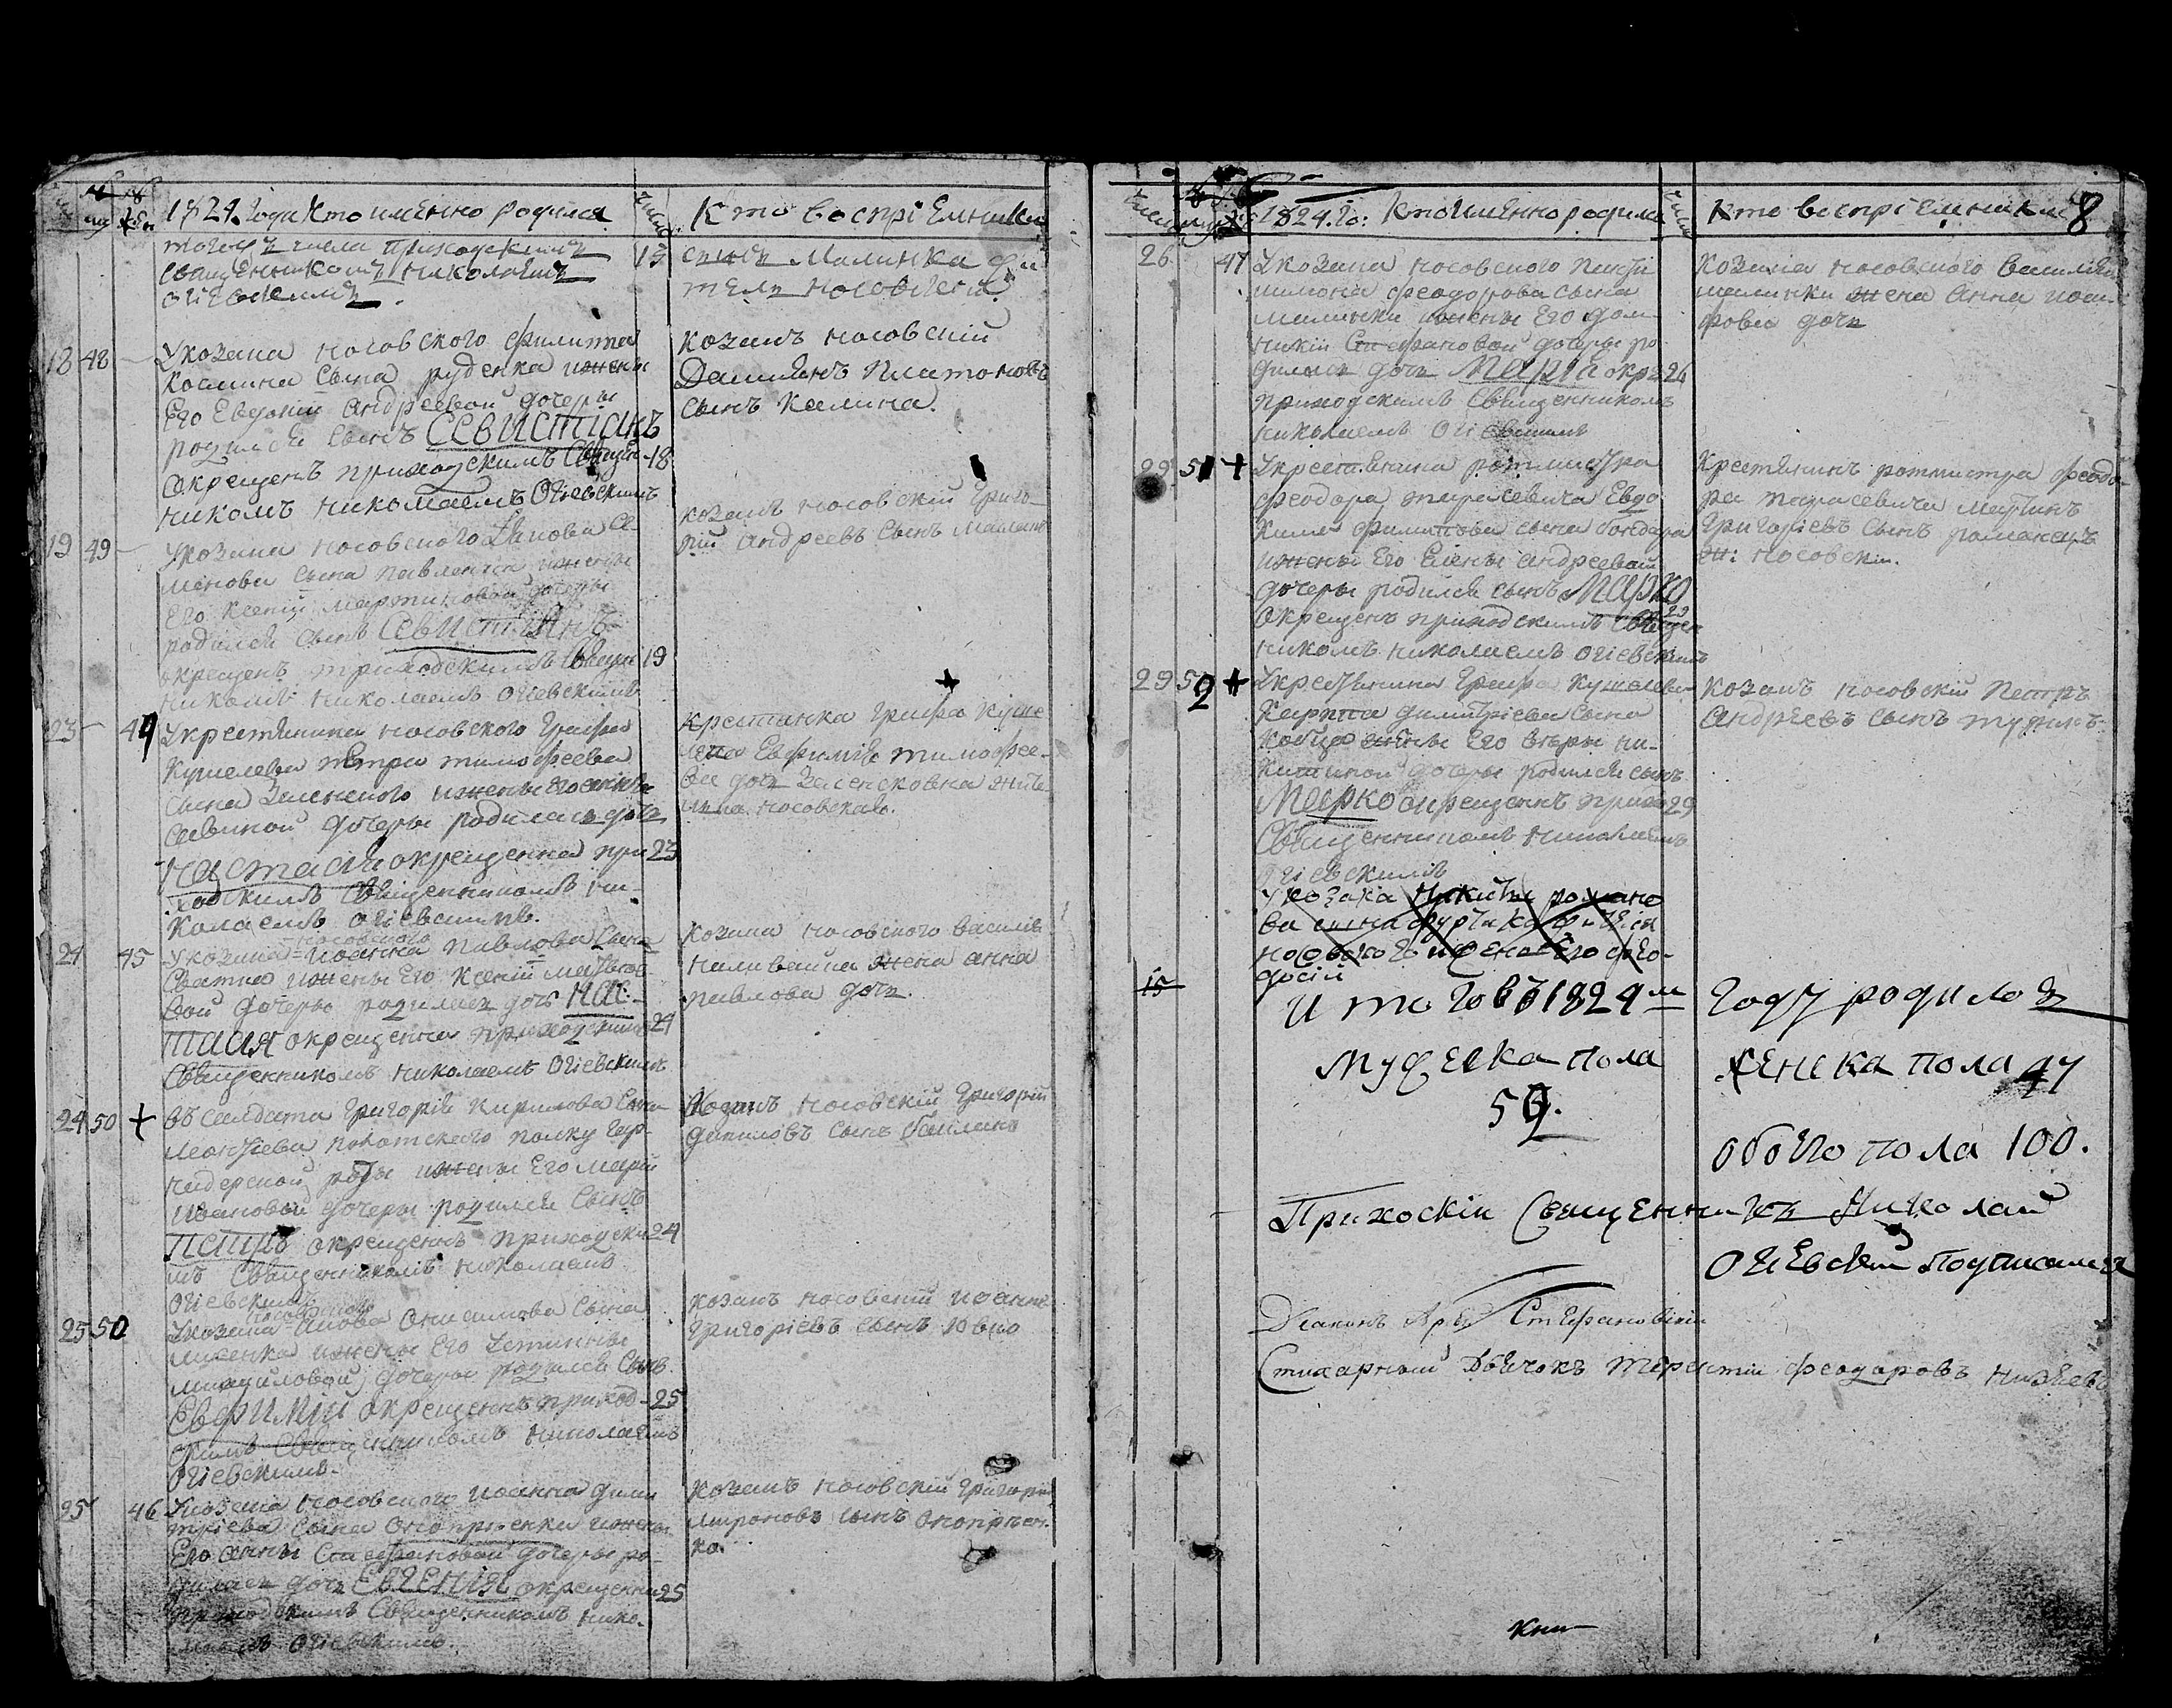 1824. года Кто именно родился
Кто воспрiемники
тогожъ числа приходскимъ 13
священникомъ Николаемъ
Огiевскимъ.
синъ Малинка жи
тель носовскiй
18 48 У козака носовского Филиппа
Космина сына руденка и жены
Его Евдокiи Андреевой дочеры
родился сынъ Севистианъ
окрещенъ приходскимъ Свяще 18
никомъ Николаемъ Огiевскимъ
козакъ носовскiй
Дамианъ Платоновъ
сынъ Калина.
19 49 У козака носовского Якова Се
менова сына Павленка и жены
Его Ксенiи Мартиновой дочеры
родился сынъ Севистиянъ
окрещенъ приходскимъ Свяще 19
никомъ Николаемъ Огiевскимъ
козакъ носовскiй Григо
рiй Андреевъ Сынъ
23 44 У крестянина носовского Графа
Кушелева Петра Тимофеева
сына Зеленского и жены Его
Савиной дочеры родилась дочь
Настасiя окрещенна при 23
ходскимъ Священникомъ Ни
колаемъ Огiевскимъ.
крестянка Графа Куше
лева Евфимiя Тимофее
ва дочь Зеленсковна жите
носовская.
24 45 У козака носовского Иоанна Павлова Сына
Сватка и жены Его Ксенiи Матвее
вой дочеры родилась дочь Нас
тасiя окрещенна приходским 24
Священникомъ Николаемъ Огiевскимъ
козака носовского Василiя
Наливайка жена Анна
Павлова дочь.
24 50 + въ салдата Григорiя Кирилова Сина
Леонтiева полку Гар
надерской роты и жены Его Марiи
Ивановой дочеры родился Сынъ
Петръ окрещенъ приходски 24
мъ Священникомъ Николаемъ
Огiевскимъ
Козакъ носовскiй Григорiй
Даниловъ сынъ
25 50 У козака носовского Якова Онисимова Сына
и жены Его Устинны
Михайловой дочеры родился Сынъ
Евфимiй окрещенъ приход 25
скимъ Священникомъ Николаемъ
Огiевскимъ.
козакъ носовскiй Иоаннъ
Григорiевъ сынъ
25 46 У козака носовского Иоанна Дими
трiева Сына Оноприенка и жены
Его Анны Стефановой дочеры ро
дилась дочь Евгенiя окрещенна 25
приходскимъ Священникомъ Нико
лаемъ Огiевскимъ.
Козакъ носовскiй Григорiй
Мироновъ сынъ Оноприен
ко.
1824. го: Кто Именно родился
Кто воспрiемники 8
26 47 У козака носовского
Феодорова сына
Малинки и жены Его Дом
никiи Стефановой дочеры ро
дилась дочь Марiя окре 26
приходскимъ Священникомъ
Николаемъ Огiевскимъ
Козака носовского Василия
Малинки жена Анна Иоси
фова дочь
29 51 + У крестянина ротмистра
Феодора Тарасевича Евдо
кима Филипова сына бондара
и жены Его Елены Андреевой
дочеры родился сынъ Марко
окрещенъ приходскимъ Священ 29
никомъ Николаемъ Огiевскимъ
Крестянинъ ротмистра Феодо
ра Тарасевича Мартинъ
Григорiевъ сынъ романецъ
жи: носовскi.
29 52 + У крестянина Графа Кушелева
Карпа Димитрiева Сына
Кобца жены Его Веры Ни
китиной дочеры родился сынъ
Марко окрещенъ прихо 29
Священникомъ Николаемъ
Огiевскимъ
Козакъ носовскiй Петръ
Андреевъ сынъ
У козака Никиты романо
ва сина фурсика жителя
носовского и жены Его Фео
досiи
15
И того въ 1824 м году родилось
Мужеска пола
52.
Женска пола 47
обоего пола 100.
Прихоскiи Священникъ Николай
Огiевскiй подписался
Дiаконъ Стефановiчь
Стихарный Дьячокъ Терентiй Феодоровъ
кни